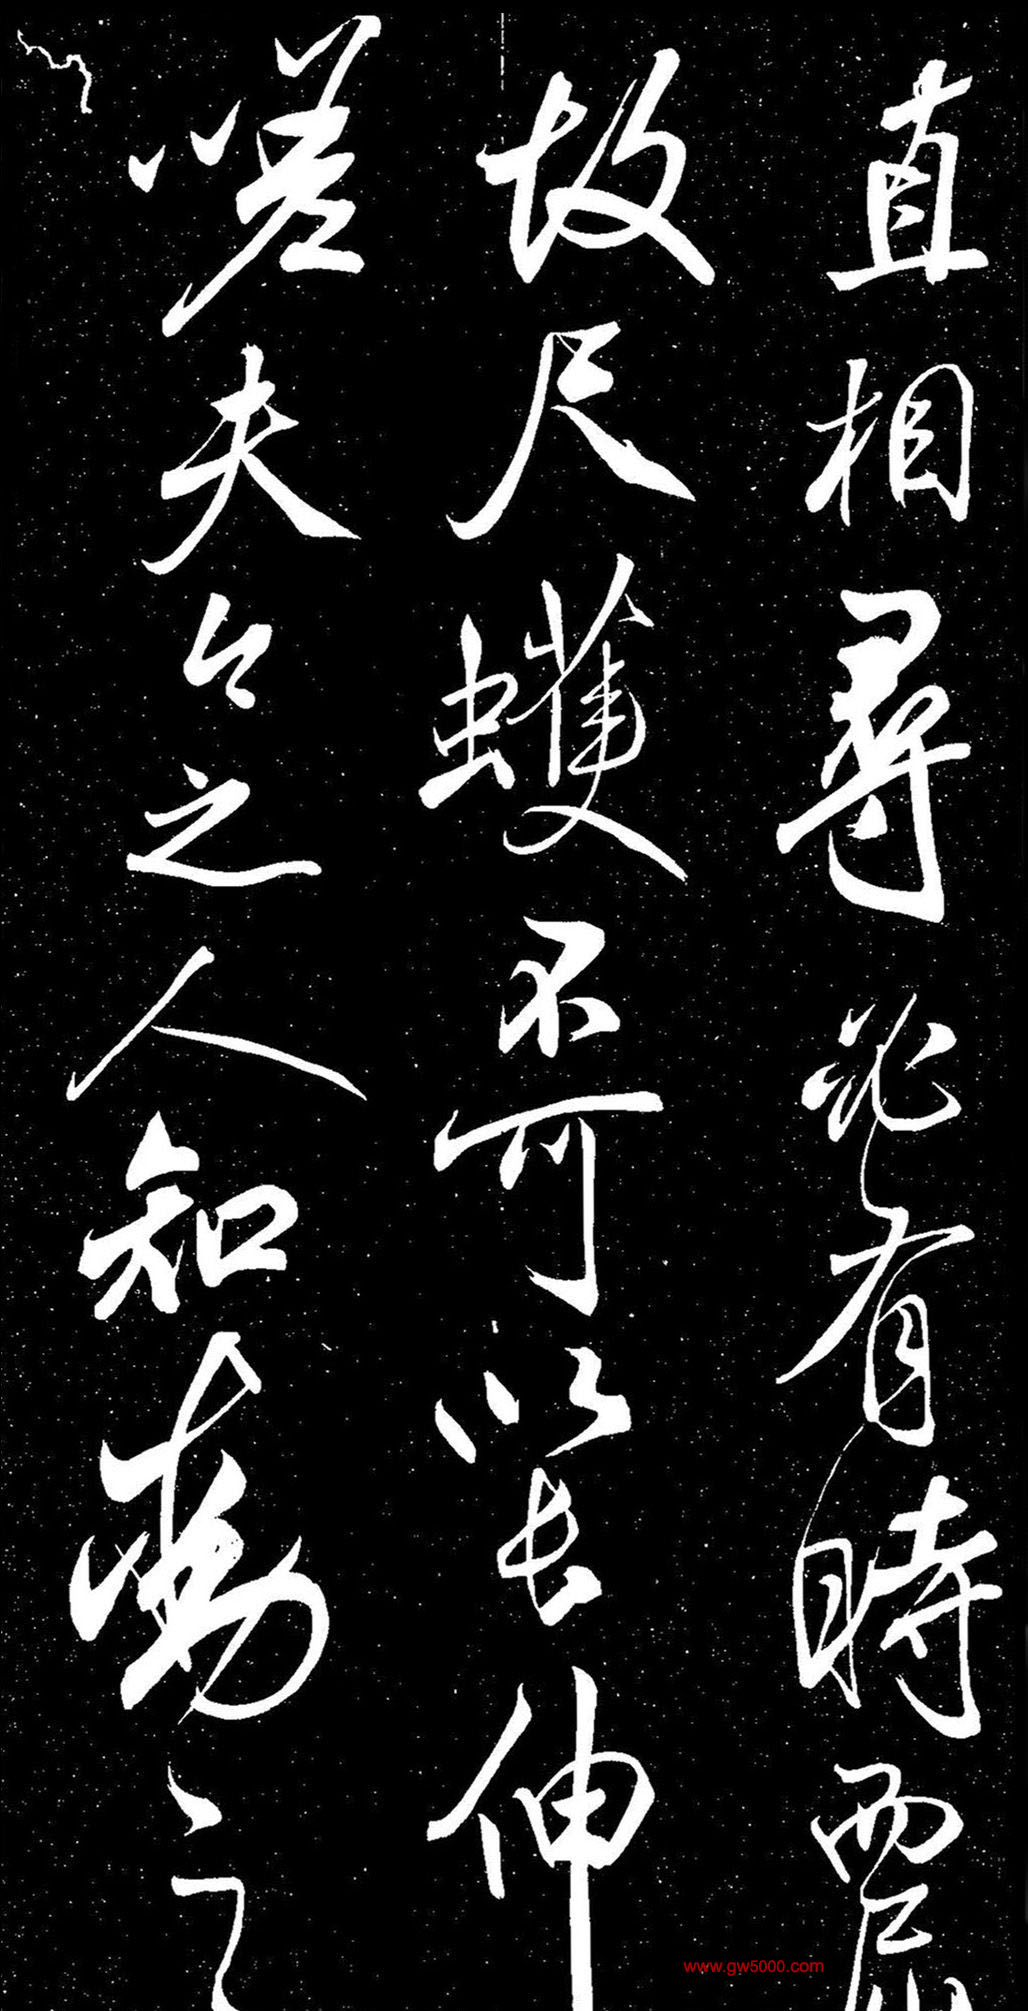 直相尋必有時而
故尺蠖不可以長伸
嗟夫今之人知動之
www.gw5000.com